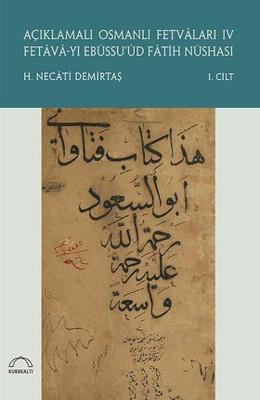 AÇIKLAMALI OSMANLI FETVÂLARI IV
FETÂVÂ-YI EBÜSSU'ÛD FÂTİH NÜSHASI
H. NECÂTİ DEMİRTAŞ
1. CİLT
هذا كتاب فتاواى
ابو السعود
رحمة الله
عليه رحمة
واسعة
KUBBEALTI